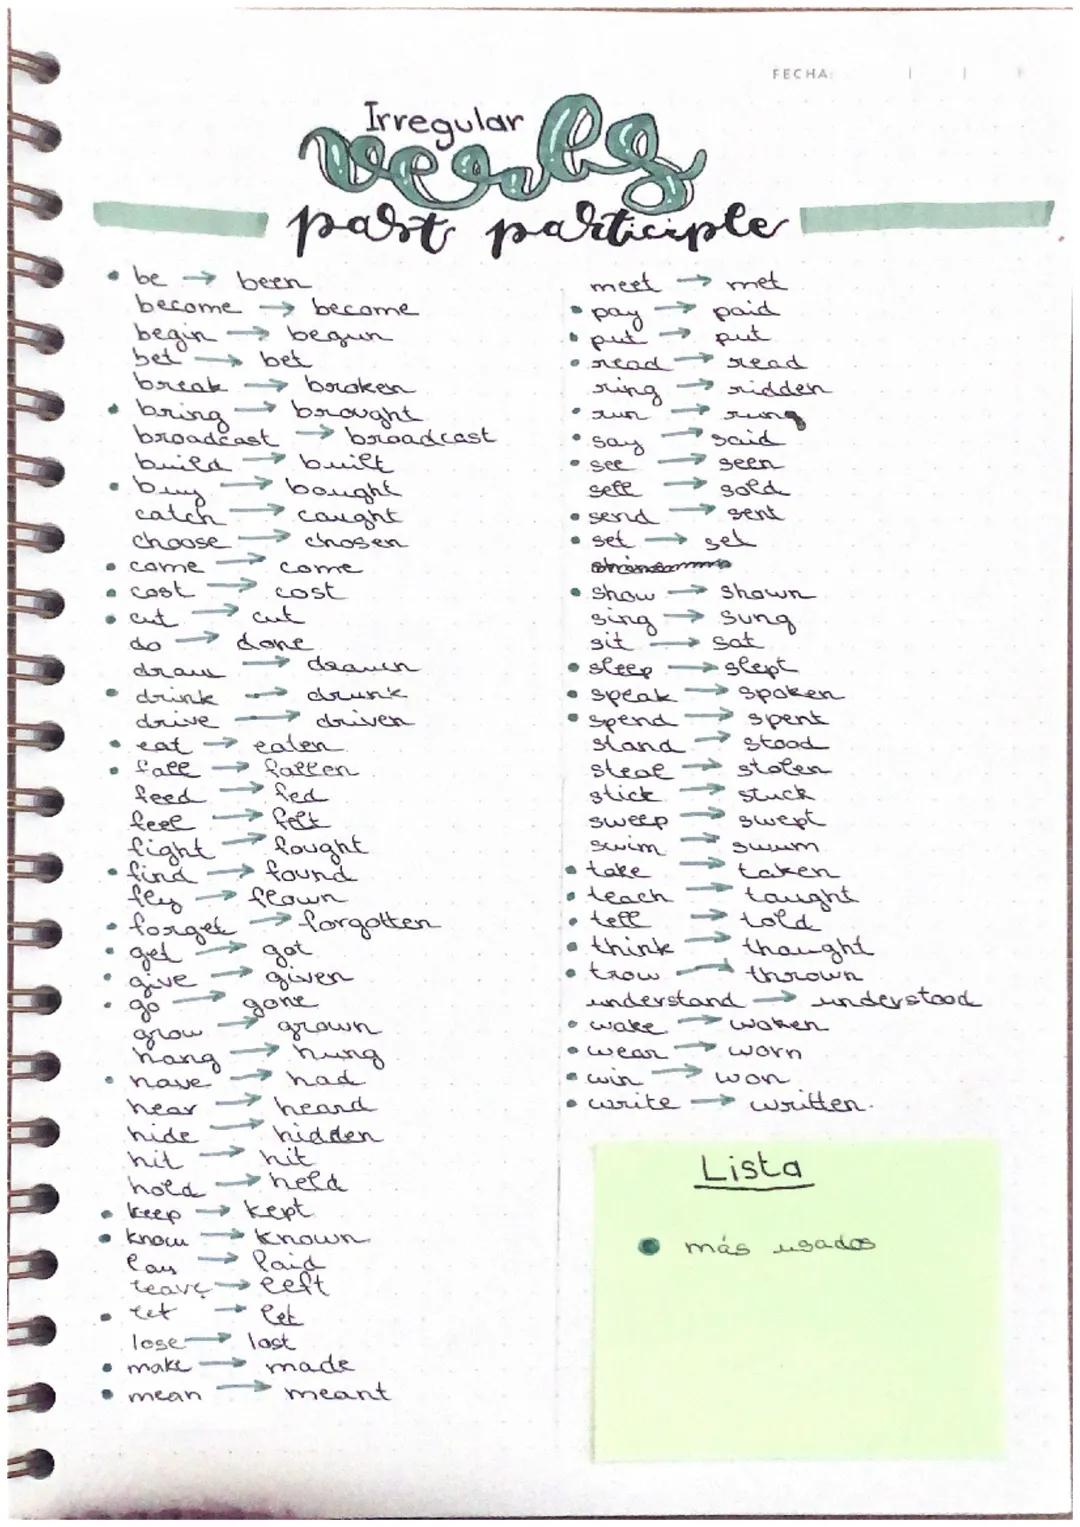 FECHA:
Irregular
verbs
past participle
• be → been
become → become
begin → begun
bet → bet
break → broken
• bring → brought
broadcast → broadcast
build → built
• buy → bought
catch → caught
choose → chosen
• come → come
• cost → cost
• cut → cut
do → done
draw → drawn
• drink → drunk
drive → driven
• eat → eaten
• fall → fallen
feed → fed
feel → felt
fight → fought
• find → found
fly → flown
• forget → forgotten
• get → got
• give → given
• go → gone
grow → grown
hang → hung
• have → had
hear → heard
hide → hidden
hit → hit
hold → held
• keep → kept
• know → known
lay → laid
leave → left
• let → let
lose → lost
• make → made
• mean → meant
meet → met
• pay → paid
• put → put
• read → read
ring → ridden
• run → rung
• say → said
• see → seen
sell → sold
• send → sent
• set → set
• show → shown
sing → sung
sit → sat
• sleep → slept
• speak → spoken
• spend → spent
stand → stood
steal → stolen
stick → stuck
sweep → swept
swim → swum
• take → taken
• teach → taught
• tell → told
• think → thought
• trow → thrown
understand → understood
• wake → woken
• wear → worn
• win → won
• write → written.
Lista
• más usados